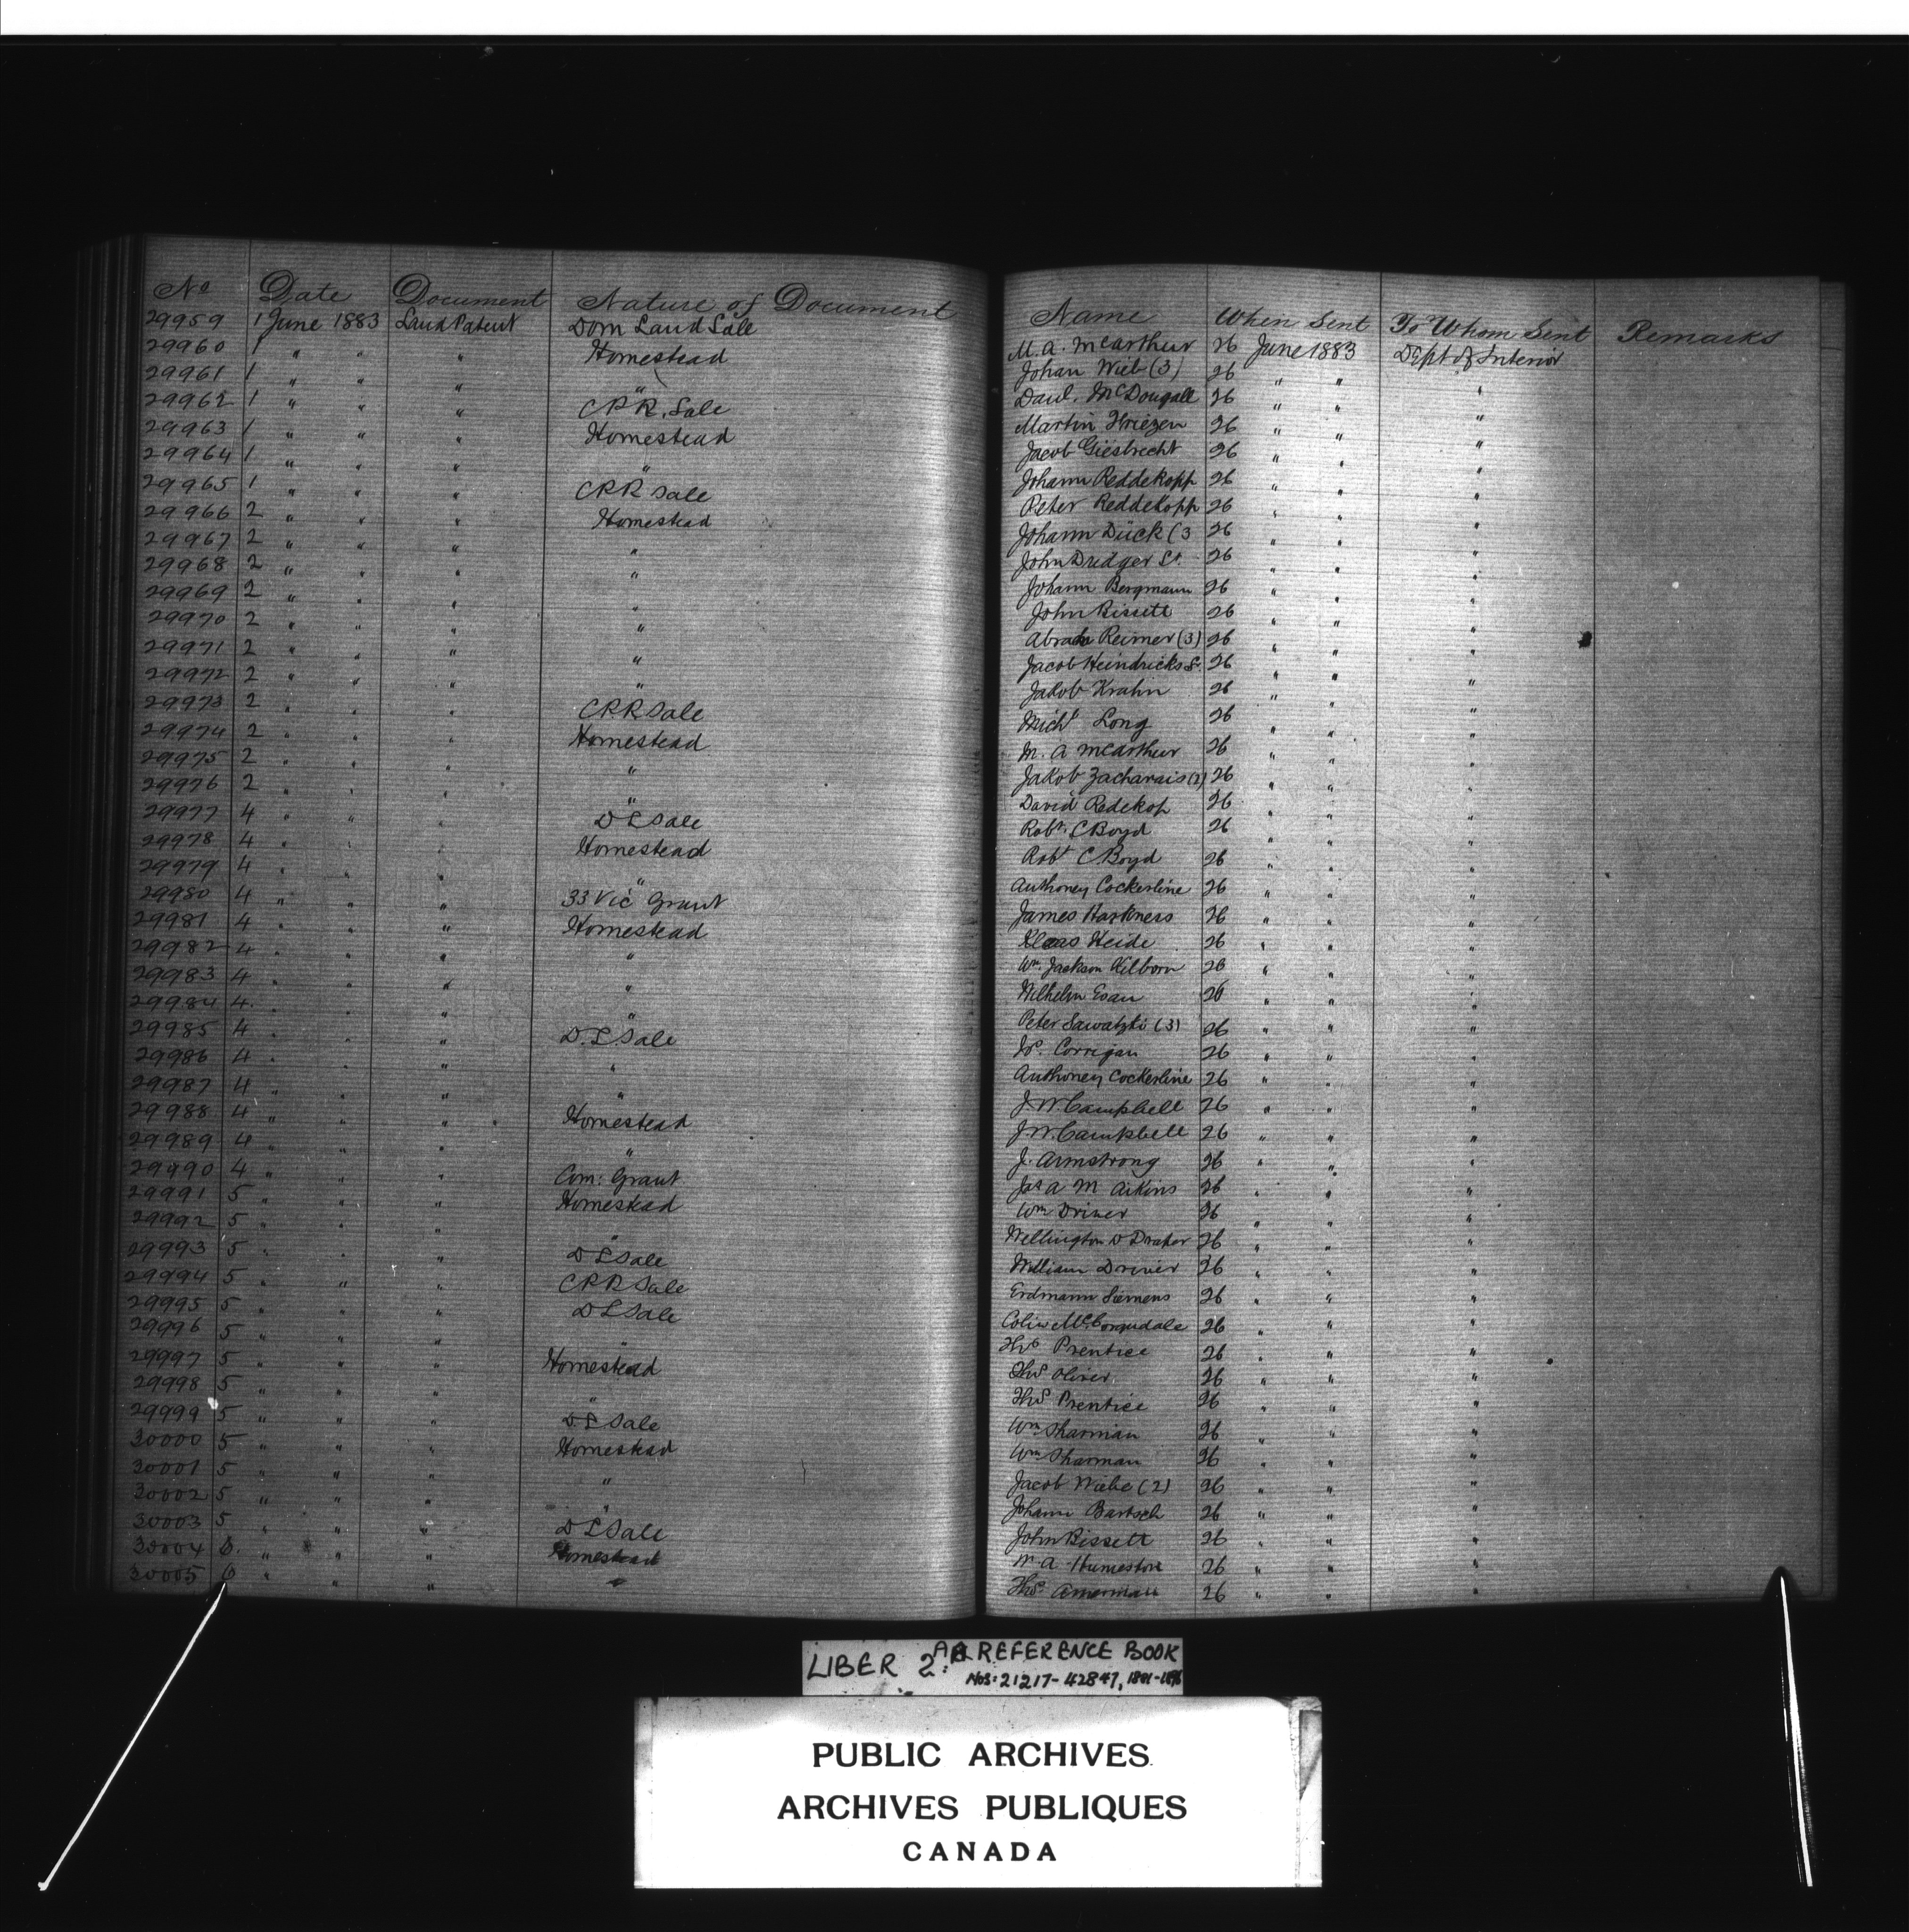 No Date Document Nature of Document
29959 1 June 1883 Land Patent Dom Land Sale
29960 1 " " " Homestead
29961 1 " " " "
29962 1 " " " CPR. Sale
29963 1 " " " Homestead
29964 1 " " " "
29965 1 " " " CPR Sale
29966 2 " " " Homestead
29967 2 " " " "
29968 2 " " " "
29969 2 " " " "
29970 2 " " " "
29971 2 " " " "
29972 2 " " " "
29973 2 " " " CPR Sale
29974 2 " " " Homestead
29975 2 " " " "
29976 2 " " " "
29977 4 " " " D L Sale
29978 4 " " " Homestead
29979 4 " " " "
29980 4 " " " 33 Vic Grant
29981 4 " " " Homestead
29982 4 " " " "
29983 4 " " " "
29984 4 " " " "
29985 4 " " " D. L. Sale
29986 4 " " " "
29987 4 " " " "
29988 4 " " " Homestead
29989 4 " " " "
29990 4 " " " Com: Grant
29991 5 " " " Homestead
29992 5 " " " "
29993 5 " " " D L Sale
29994 5 " " " CPR Sale
29995 5 " " " D L Sale
29996 5 " " " "
29997 5 " " " Homestead
29998 5 " " " "
29999 5 " " " D L Sale
30000 5 " " " Homestead
30001 5 " " " "
30002 5 " " " "
30003 5 " " " D L Sale
30004 6 " " " Homestead
30005 6 " " " "
Name When Sent To Whom Sent Remarks
M. A. McArthur 26 June 1883 Dept of Interior
Johan Wieb (3) 26 " " "
Danl. McDougall 26 " " "
Martin Friezen 26 " " "
Jacob Giesbrecht 26 " " "
Johann Reddekopp 26 " " "
Peter Reddekopp 26 " " "
Johann Dück (3 26 " " "
John Dridger Sr. 26 " " "
Johann Bergmann 26 " " "
John Bissett 26 " " "
Abram Reimer (3) 26 " " "
Jacob Heindricks Sr. 26 " " "
Jakob Krahn 26 " " "
Michl Long 26 " " "
M. A McArthur 26 " " "
Jakob Zacharais (2) 26 " " "
David Redekop 26 " " "
Robt. C Boyd 26 " " "
Robt C Boyd 26 " " "
Anthoney Cockerline 26 " " "
James Harkness 26 " " "
Klaas Heide 26 " " "
Wm. Jackson Kilborn 26 " " "
Wilhelm Esau 26 " " "
Peter Sawatzki (3) 26 " " "
Corrigan 26 " " "
Anthoney Cockerline 26 " " "
J. W. Campbell 26 " " "
J. W. Campbell 26 " " "
J. Armstrong 26 " " "
Jas A M Aikins 26 " " "
Wm Driver 26 " " "
Wellington D 26 " " "
William Driver 26 " " "
Erdmann Siemens 26 " " "
Colin McCorqudale 26 " " "
Thos Prentice 26 " " "
Thos Oliver 26 " " "
Thos Prentice 26 " " "
Wm Sharman 26 " " "
Wm Sharman 26 " " "
Jacob Wiebe (2) 26 " " "
Johann Bartsch 26 " " "
John Bissett 26 " " "
W. A. Humeston 26 " " "
Thos. Amerman 26 " " "
LIBER 2: AB REFERENCE BOOK
Nos: 21217-42847,
PUBLIC ARCHIVES
ARCHIVES PUBLIQUES
CANADA